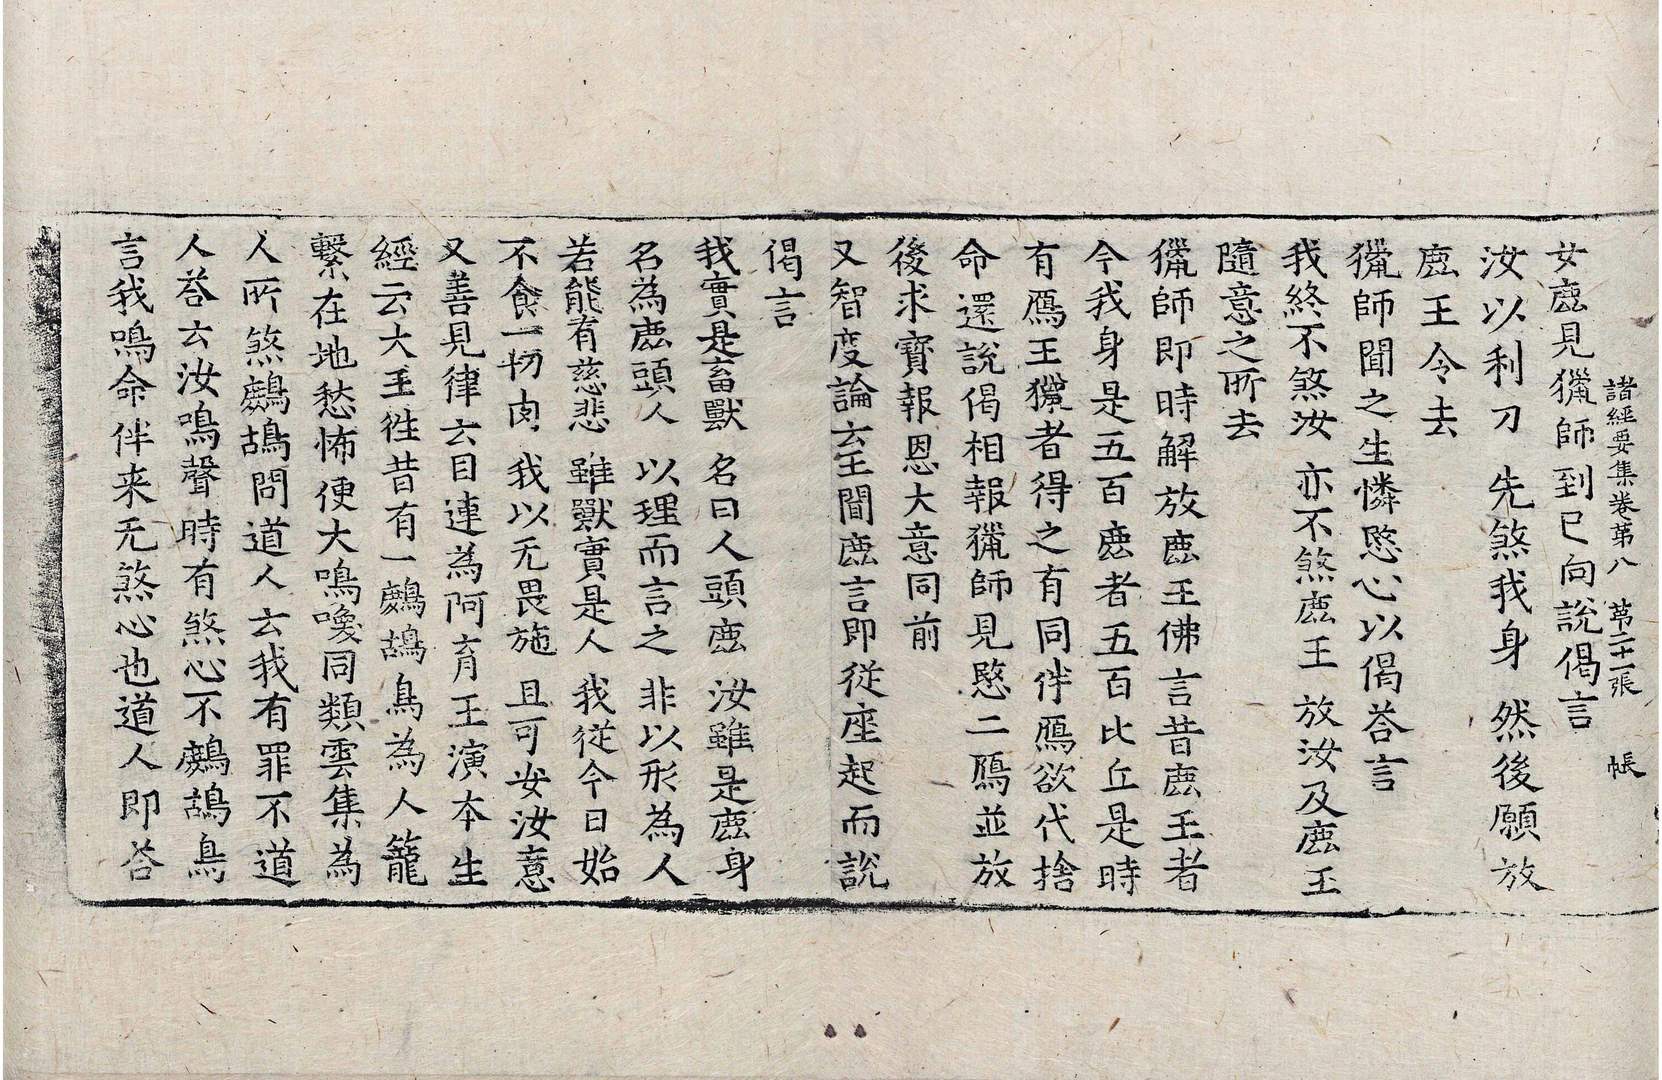 諸經要集卷第八 第二十一張 帳
女鹿見獵師到已向說偈言
汝以利刀 先煞我身 然後願放
鹿王令去
獵師聞之生憐愍心以偈荅言
我終不煞汝 亦不煞鹿王 放汝及鹿王
隨意之所去
獵師即時解放鹿王佛言昔鹿王者
今我身是五百鹿者五百比丘是時
有鴈王獵者得之有同伴鴈欲代捨
命還說偈相報獵師見愍二鴈並放
後求寶報恩大意同前
又智度論云至聞鹿言即從座起而說
偈言
我實是畜獸 名曰人頭鹿 汝雖是鹿身
名為鹿頭人 以理而言之 非以形為人
若能有慈悲 雖獸實是人 我從今日始
不食一切肉 我以无畏施 且可安汝意
又善見律云目連為阿育王演本生
經云大王徃昔有一鷓鴣鳥為人籠
繫在地愁怖便大鳴喚同類雲集為
人所煞鷓鴣問道人云我有罪不道
人荅云汝鳴聲時有煞心不鷓鴣鳥
言我鳴命伴来无煞心也道人即荅